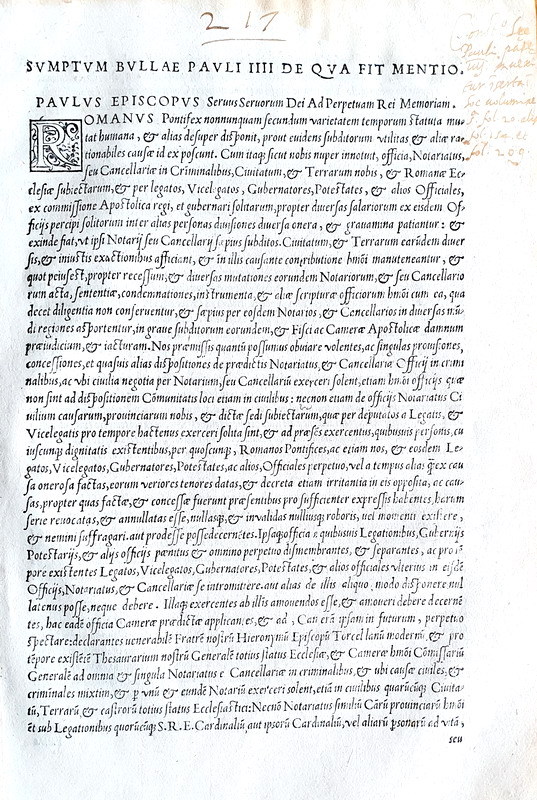 217
SVMPTVM BVLLAE PAVLI IIII DE QVA FIT MENTIO.
PAVLVS EPISCOPVS Seruus Seruorum Dei Ad Perpetuam Rei Memoriam.
ROMANVS Pontifex nonnunquam secundum varietatem temporum statuta mu-
tat humana, & alias desuper disponit, prout euidens subditorum vtilitas & aliæ ra-
tionabiles causæ id exposcunt. Cum itaq; sicut nobis nuper innotuit, officia, Notariatus,
seu Cancellariæ in Criminalibus, Ciuitatum, & Terrarum nobis, & Romanæ Ec-
clesiæ subiectarum, & per legatos, Vicelegatos, Gubernatores, Potestates, & alios Officiales,
ex commissione Apostolica regi, et gubernari solitarum, propter diuersas salariorum ex eisdem Of-
ficijs percipi solitorum inter alias personas diuisiones diuersa onera, & grauamina patiantur: &
exinde fiat, vt ipsi Notarij seu Cancellarij sæpius subditos. Ciuitatum, & Terrarum earūdem diuer
sis, & iniustis exactionibus afficiant, & in illis causante contributione hmōi manuteneantur, &
quot peius est, propter recessum, & diuersas mutationes eorundem Notariorum, & seu Cancellario
rum acta, sententiæ, condemnationes, instrumenta, & aliæ scripturæ officiorum hmōi cum ea, qua
decet diligentia non conseruentur, & sæpius per eosdem Notarios, & Cancellarios in diuersas mū-
di regiones asportentur, in graue subditorum eorundem, & Fisci ac Cameræ Apostolicæ damnum
præiudicium, & iacturam. Nos præmissis quantū possumus obuiare volentes, ac singulas prouisiones,
concessiones, et quasuis alias dispositiones de prædictis Notariatus, & Cancellariæ Officij in crimi
nalibus, ac vbi ciuilia negotia per Notarium, seu Cancellariū exerceri solent, etiam hmōi officijs quæ
non sint ad dispositionem Comunitatis loci etiam in ciuilibus: necnon etiam de officijs Notariatus Ci
uilium causarum, prouinciarum nobis, & dictæ sedi subiectarum, quæ per deputatos a Legatis, &
Vicelegatis pro tempore hactenus exerceri solita sint, & ad præsens exercentur, quibusuis personis, cu
iuscunq; dignitatis existentibus, per quoscunq, Romanos Pontifices, ac etiam nos, & eosdem Le-
gatos, Vicelegatos, Gubernatores, Potestates, ac alios, Officiales perpetuo, vel a tempus alias q̃ex cau
sa onerosa factas, eorum veriores tenores datas, & decreta etiam irritantia in eis opposita, ac cau-
sas, propter quas factæ, & concessæ fuerunt præsentibus pro sufficienter expressis habentes, harum
serie reuocatas, & annullatas esse, nullasq, & inualidas nulliusq; roboris, vel momenti existere,
& nemini suffragari. aut prodesse posse decernētes. Ipsaq; officia a quibusuis Legationibus, Gubernijs
Potestarijs, & alijs officijs pœnitus & omnino perpetuo dismembrantes, & separantes, ac pro tē
pore existentes Legatos, Vicelegatos, Gubernatores, Potestates, & alios officiales vlterius in eisdē
Officijs, Notariatus, & Cancellariæ se intromittere. aut alias de illis aliquo modo disponere nul
latenus posse, neque debere. Illaq; exercentes ab illis amouendos esse, & amoueri debere decernē
tes, hac eadē officia Cameræ prædictæ applicantes, & ad, Can erā ipsam in futurum, perpetuo
spectare: declarantes uenerabilē Fratrē nostrū Hieronymū Episcopū Torcellanū modernū, & pro
tēpore existētē Thesaurarium nostrū Generalē totius status Ecclesiæ, & Cameræ hmōi Cōmissariū
Generalē ad omnia & singula Notariatus e Cancellariæ in criminalibus, & ubi causæ ciuiles, &
criminales mixtim, & p vnū & eundē Notariū exerceri solent, etiā in ciuilibus quarūcūq; Ciuita-
tū, Terrarū, & castrorū totius status Ecclesiastici: Necnō Notariatus similiū Cārū prouinciarū hmōi
et sub Legationibus quorūcūq; S.R.E. Cardinaliū, aut ipsorū Cardinaliū, vel aliarū psonarū ad vitā,
seu